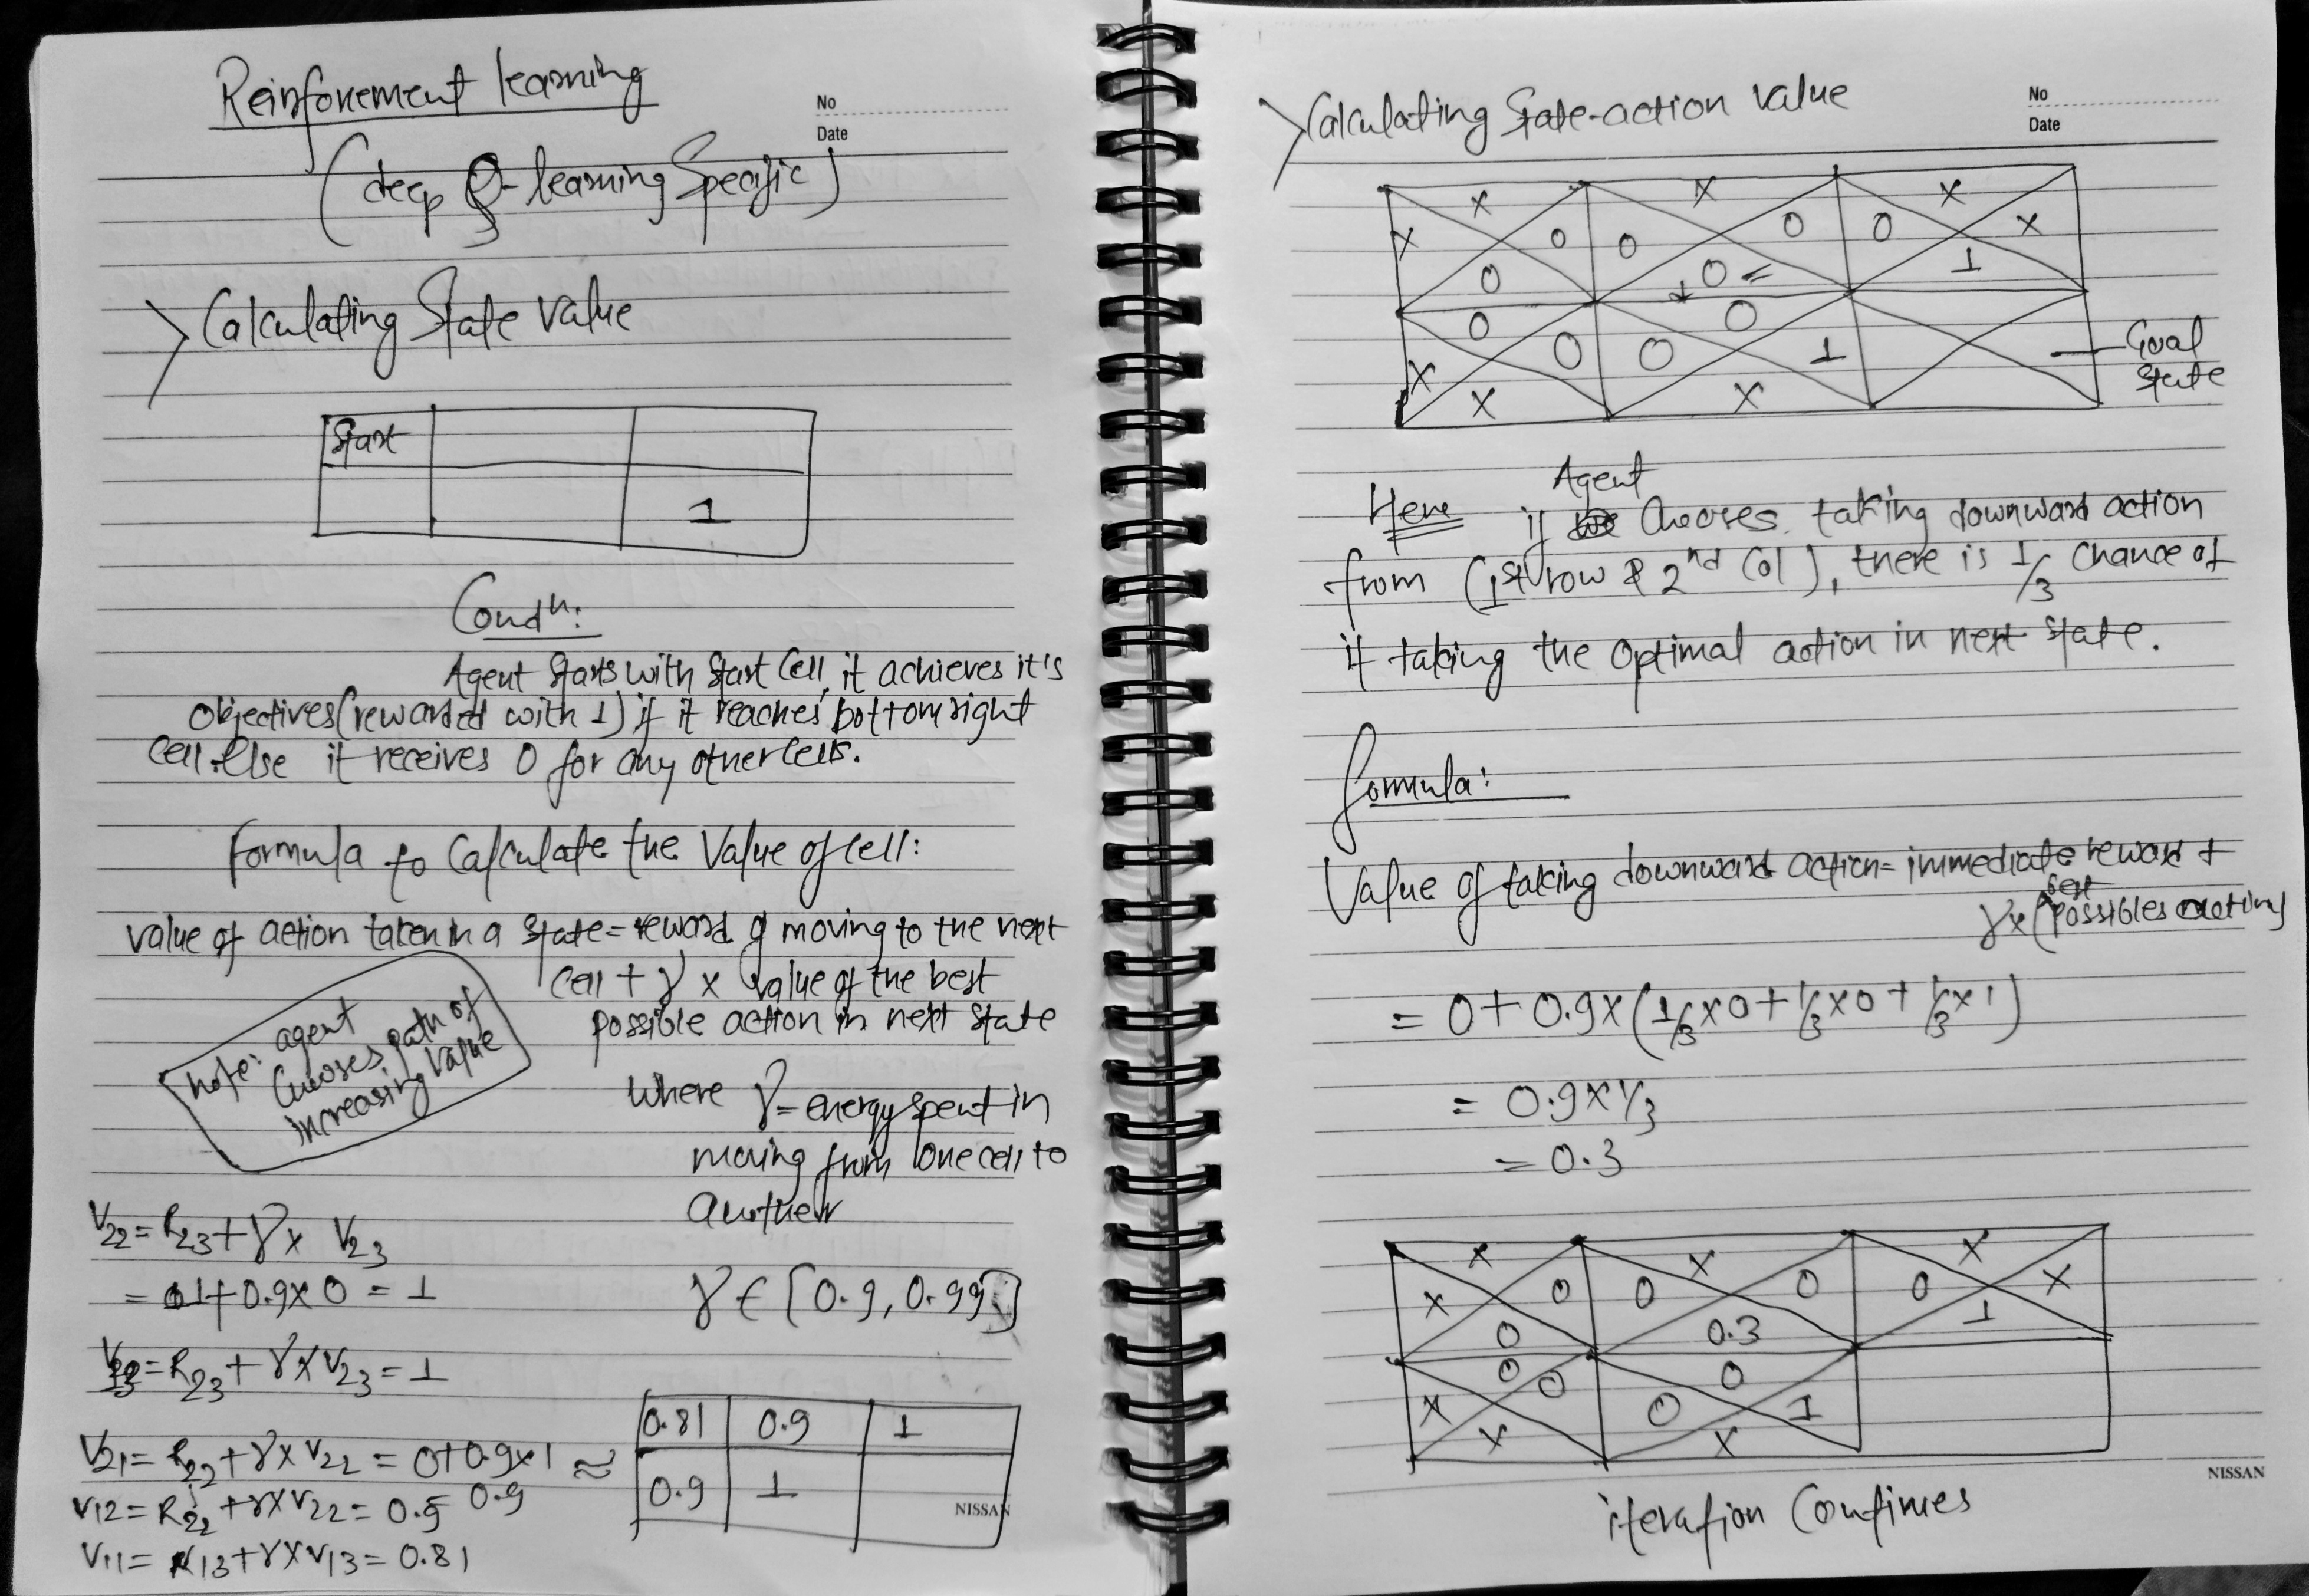 Reinforement learning
No
Date
(deep Q-learning Specific)
> Calculating State Value
Start
1
Condn:
Agent Starts with Start Cell, it achieves it's
Objectives (rewarded with 1) if it reaches bottom right
Cell. Else it receives 0 for any other cells.
Formula to Calculate the Value of cell:
value of action taken in a State = reward of moving to the next
cell + γ x value of the best
possible action in next state
Note: agent
Chooses path of
increasing value
Where γ = energy spent in
moving from one cell to
another
V22 = R23 + γ x V23
= 1 + 0.9 x 0 = 1
γ ∈ [0.9, 0.99]
V13 = R23 + γ x V23 = 1
V21 = R22 + γ x V22 = 0 + 0.9 x 1 ≈
V12 = R22 + γ x V22 = 0.9
V11 = R13 + γ x V13 = 0.81
0.81 0.9 1
0.9 1
NISSAN
> Calculating State-action value
No
Date
X X X
X 0 0 0 0 X
0 0 = 1
0 0
X 0 0 1
X X
Goal
State
Agent
Here if Chooses taking downward action
from (1st row & 2nd Col), there is 1/3 chance of
it taking the optimal action in next state.
formula:
Value of taking downward action = immediate reward +
γ x (best possibles actions)
= 0 + 0.9 x (1/3 x 0 + 1/3 x 0 + 1/3 x 1)
= 0.9 x 1/3
= 0.3
X X X
X 0 0 0 0 X
0 0.3 1
0 0 0
X 0 1
X X
NISSAN
iteration Continues